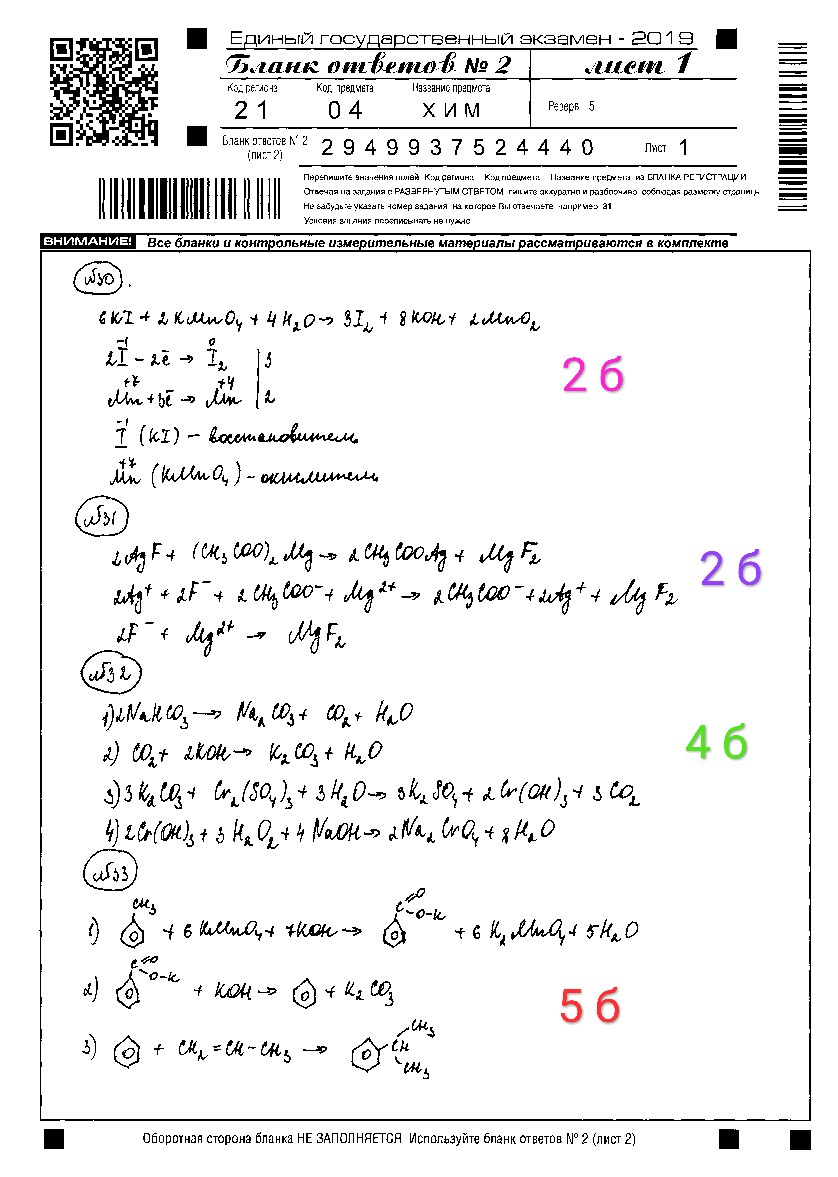 Единый государственный экзамен - 2019
Бланк ответов № 2 лист 1
Код региона Код предмета Название предмета
21 04 ХИМ Резерв 5
Бланк ответов № 2 (лист 2) 2949937524440 Лист 1
Перепишите значения полей Код региона Код предмета Название предмета из БЛАНКА РЕГИСТРАЦИИ
Отвечая на задания с РАЗВЕРНУТЫМ ОТВЕТОМ пишите аккуратно и разборчиво соблюдая разметку страницы
Не забудьте указать номер задания на которое Вы отвечаете например 31
Условия задания переписывать не нужно
ВНИМАНИЕ! Все бланки и контрольные измерительные материалы рассматриваются в комплекте
№30.
6KI + 2KMnO4 + 4H2O → 3I2 + 8KOH + 2MnO2
-1 0
2I - 2ē → I2 | 3
+7 +4
Mn + 3ē → Mn | 2
2 б
-1
I (KI) - восстановитель
+7
Mn (KMnO4) - окислитель
№31
2AgF + (CH3COO)2Mg → 2CH3COOAg + MgF2
2Ag+ + 2F- + 2CH3COO- + Mg2+ → 2CH3COO- + 2Ag+ + MgF2
2 б
2F- + Mg2+ → MgF2
№32
1) 2NaHCO3 → Na2CO3 + CO2 + H2O
2) CO2 + 2KOH → K2CO3 + H2O
4 б
3) 3K2CO3 + Cr2(SO4)3 + 3H2O → 3K2SO4 + 2Cr(OH)3 + 3CO2
4) 2Cr(OH)3 + 3H2O2 + 4NaOH → 2Na2CrO4 + 8H2O
№33
CH3 C=O
O-K
1) + 6KMnO4 + 7KOH → + 6K2MnO4 + 5H2O
C=O
O-K
2) + KOH → + K2CO3
5 б
CH3
3) + CH2=CH-CH3 → CH
CH3
Оборотная сторона бланка НЕ ЗАПОЛНЯЕТСЯ Используйте бланк ответов № 2 (лист 2)